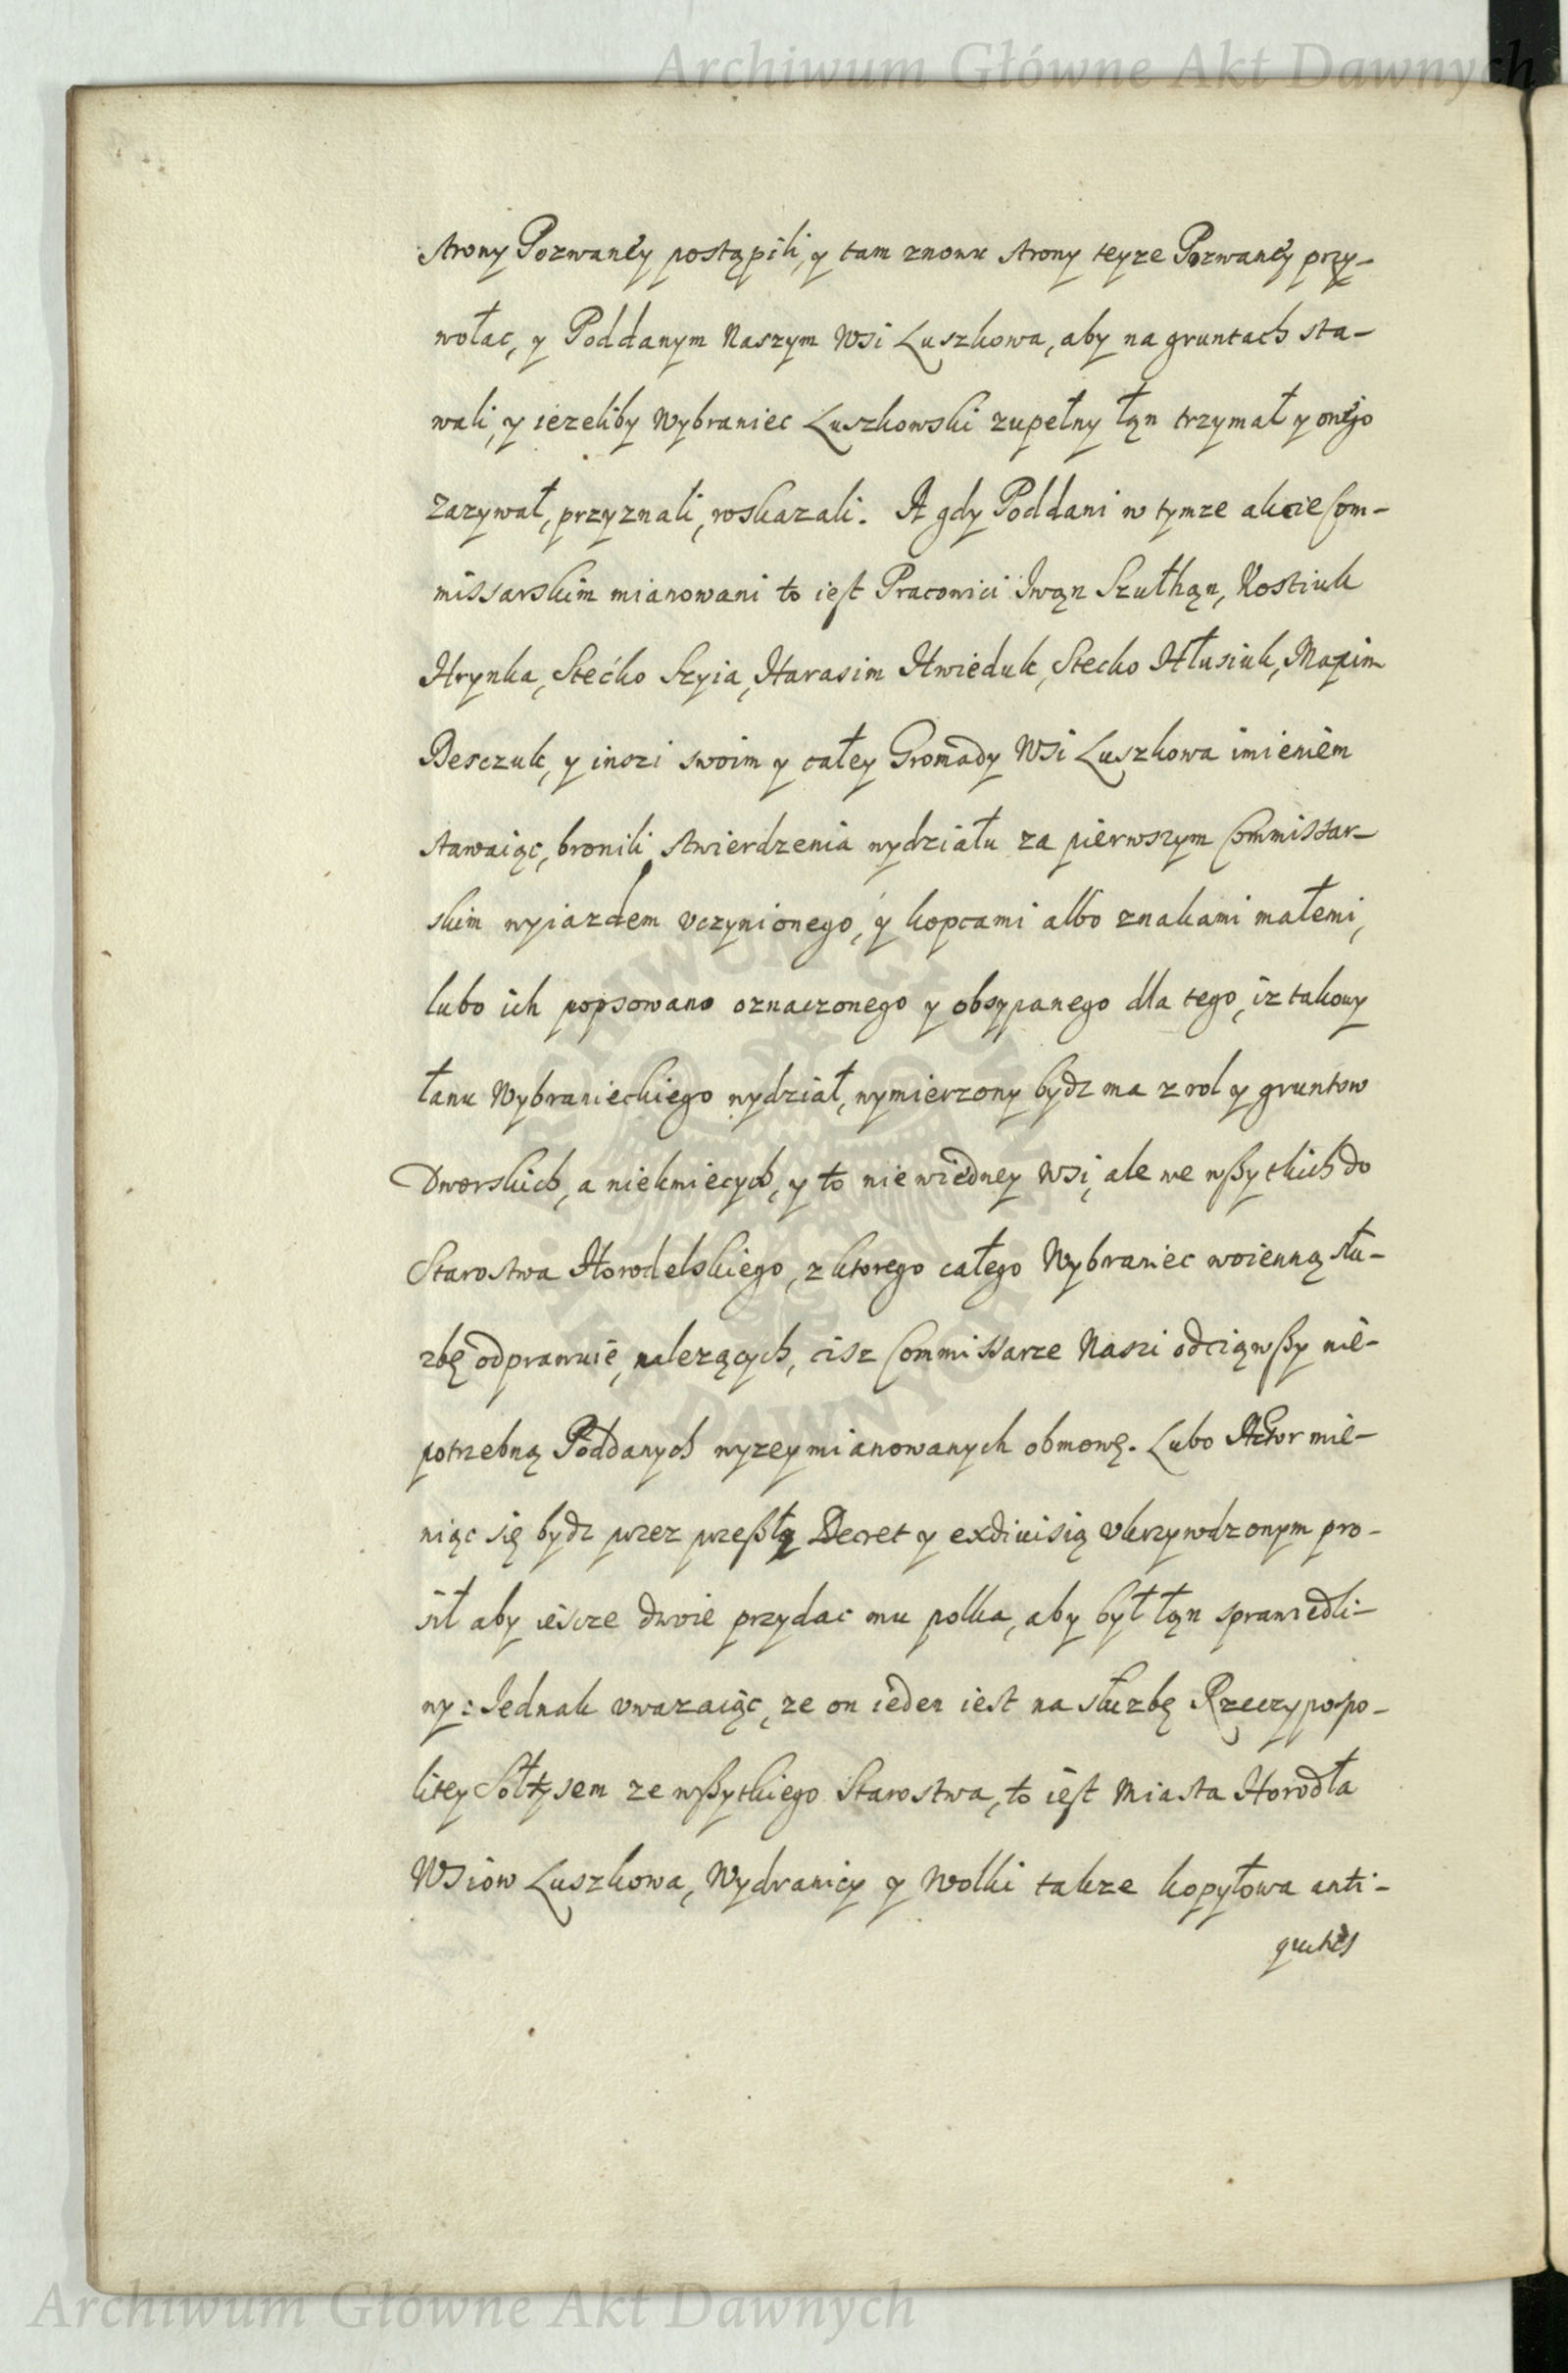 Archiwum Główne Akt Dawnych
strony Pozwaney postąpili, y tam znowu strony teyze Pozwaney przy-
wołac, y Poddanym Naszym Wsi Łuszkowa, aby na gruntach sta-
wali, y iezeliby Wybraniec Łuszkowski zupełny łąn trzymał y onego
zazywał, przyznali, roskazali. A gdy Poddani w tymze akcie Com-
missarskim mianowani to iest Pracowici Iwąn Szułhąn, Kostiuk
Hrynka, Stećko Szyia, Harasim Hwieduk, Stecko Hłusiuk, Maxim
Besczuk, y inszi swoim y całey Gromady Wsi Łuszkowa imieniem
stawaiąc, bronili stwierdzenia wydziału za pierwszym Commissar-
skim wyiazdem vczynionego, y kopcami albo znakami małemi,
lubo ich popsowano oznaczonego y obsypanego dla tego, iz takowy
łanu Wybranieckiego wydział, wymierzony bydz ma z rol y gruntow
Dworskich, a niekmiecych, y to nie wiedney Wsi, ale we wszytkich do
Starostwa Horodelskiego, z ktorego całego Wybraniec woienną słu-
zbę odprawuie, nalezących, cisz Commissarze Naszi odciąwszy nie-
potrzebną Poddanych wyzey mianowanych obmowę. Lubo Aktor mie-
niąc się bydz przez przeszły Decret y exdiuisią vkrzywdzonym pro-
sił aby ieszcze dwoie przydac mu polka, aby był łąn sprawiedli-
wy: Iednak vwazaiąc, ze on ieden iest na słuzbę Rzeczypospo-
litey Sołtysem ze wszytkiego Starostwa, to iest Miasta Horodła
Wsiow Łuszkowa, Wydranicy y Wolki takze kopyłowa anti-
quitus
Archiwum Główne Akt Dawnych